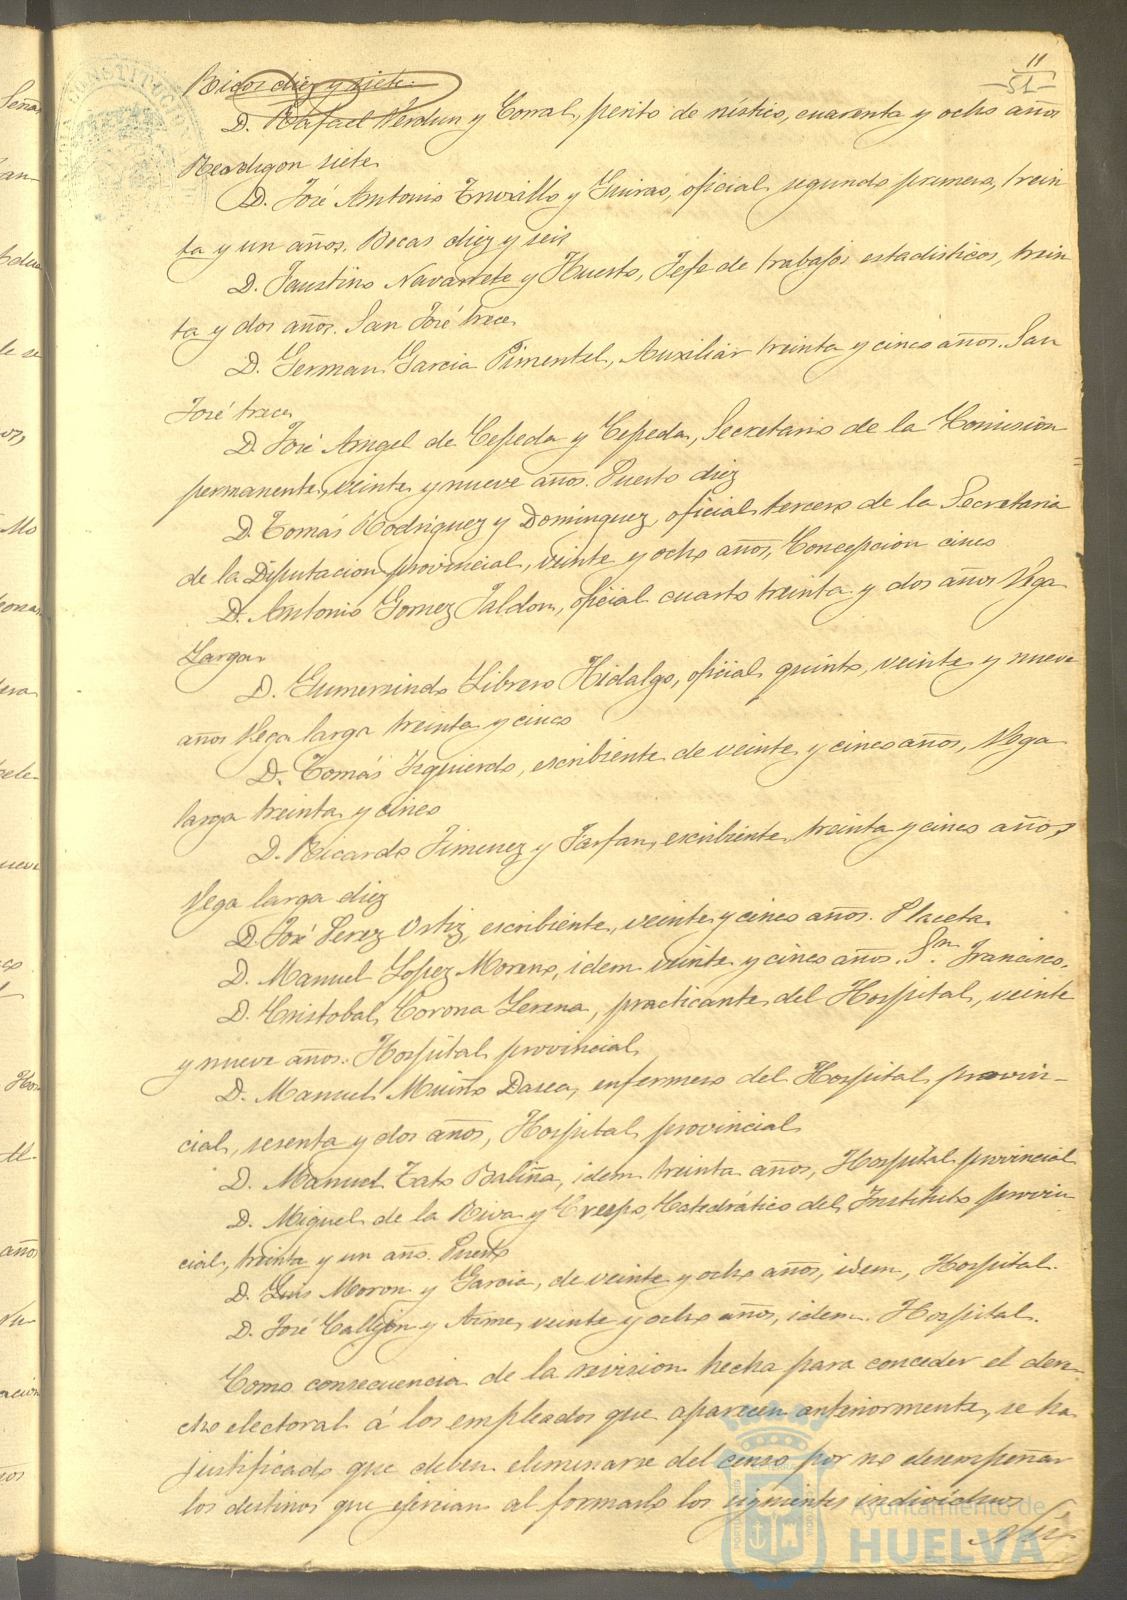 11
51
Ricos diez y siete.
D. Rafael Verdun y Corral, perito de rústico, cuarenta y ocho años
siete
D. José Antonio Truxillo y Guirao, oficial segundo primero, trein
ta y un años. Bocas diez y seis
D. Faustino Navarrete y Huerto, Jefe de trabajos estadisticos, trein
ta y dos años. San José trece
D. German Garcia Pimentel, Auxiliar treinta y cinco años. San
José trece
D. José Angel de Cepeda y Cepeda, Secretario de la Comision
permanente, veinte y nueve años. Puerto diez
D. Tomas Rodriguez y Dominguez, oficial tercero de la Secretaria
de la Diputacion provincial, veinte y ocho años, Concepcion cinco
D. Antonio Gomez Jaldon, oficial cuarto treinta y dos años Vega
Larga
D. Gumersindo Librero Hidalgo, oficial quinto, veinte y nueve
años Vega larga treinta y cinco
D. Tomás Izquierdo, escribiente de veinte y cinco años, Vega
larga treinta y cinco
D. Ricardo Jimenez y Farfan, escribiente, treinta y cinco años
Vega larga diez
D. José Perez Ortiz, escribiente, veinte y cinco años. Placeta
D. Manuel Lopez Moreno, idem veinte y cinco años. Sn. Francisco.
D. Cristobal Corona Lerena, practicante del Hospital, veinte
y nueve años. Hospital provincial
D. Manuel Muiño Dasea, enfermero del Hospital provin-
cial, sesenta y dos años, Hospital provincial
D. Manuel Tato Baliña, idem treinta años, Hospital provincial
D. Miguel de la Riva y Crespo, Catedrático del Instituto provin
cial, treinta y un año. Puerto
D. Luis Moron y Garcia, de veinte y ocho años, idem, Hospital.
D. José Callejon y Asme, veinte y ocho años, idem. Hospital.
Como consecuencia de la revision hecha para conceder el dere
cho electoral á los empleados que aparecen anteriormente, se ha
justificado que deben eliminarse del censo por no desempeñar
los destinos que ejercian al formarlo los siguientes individuos
Ayuntamiento de
HUELVA